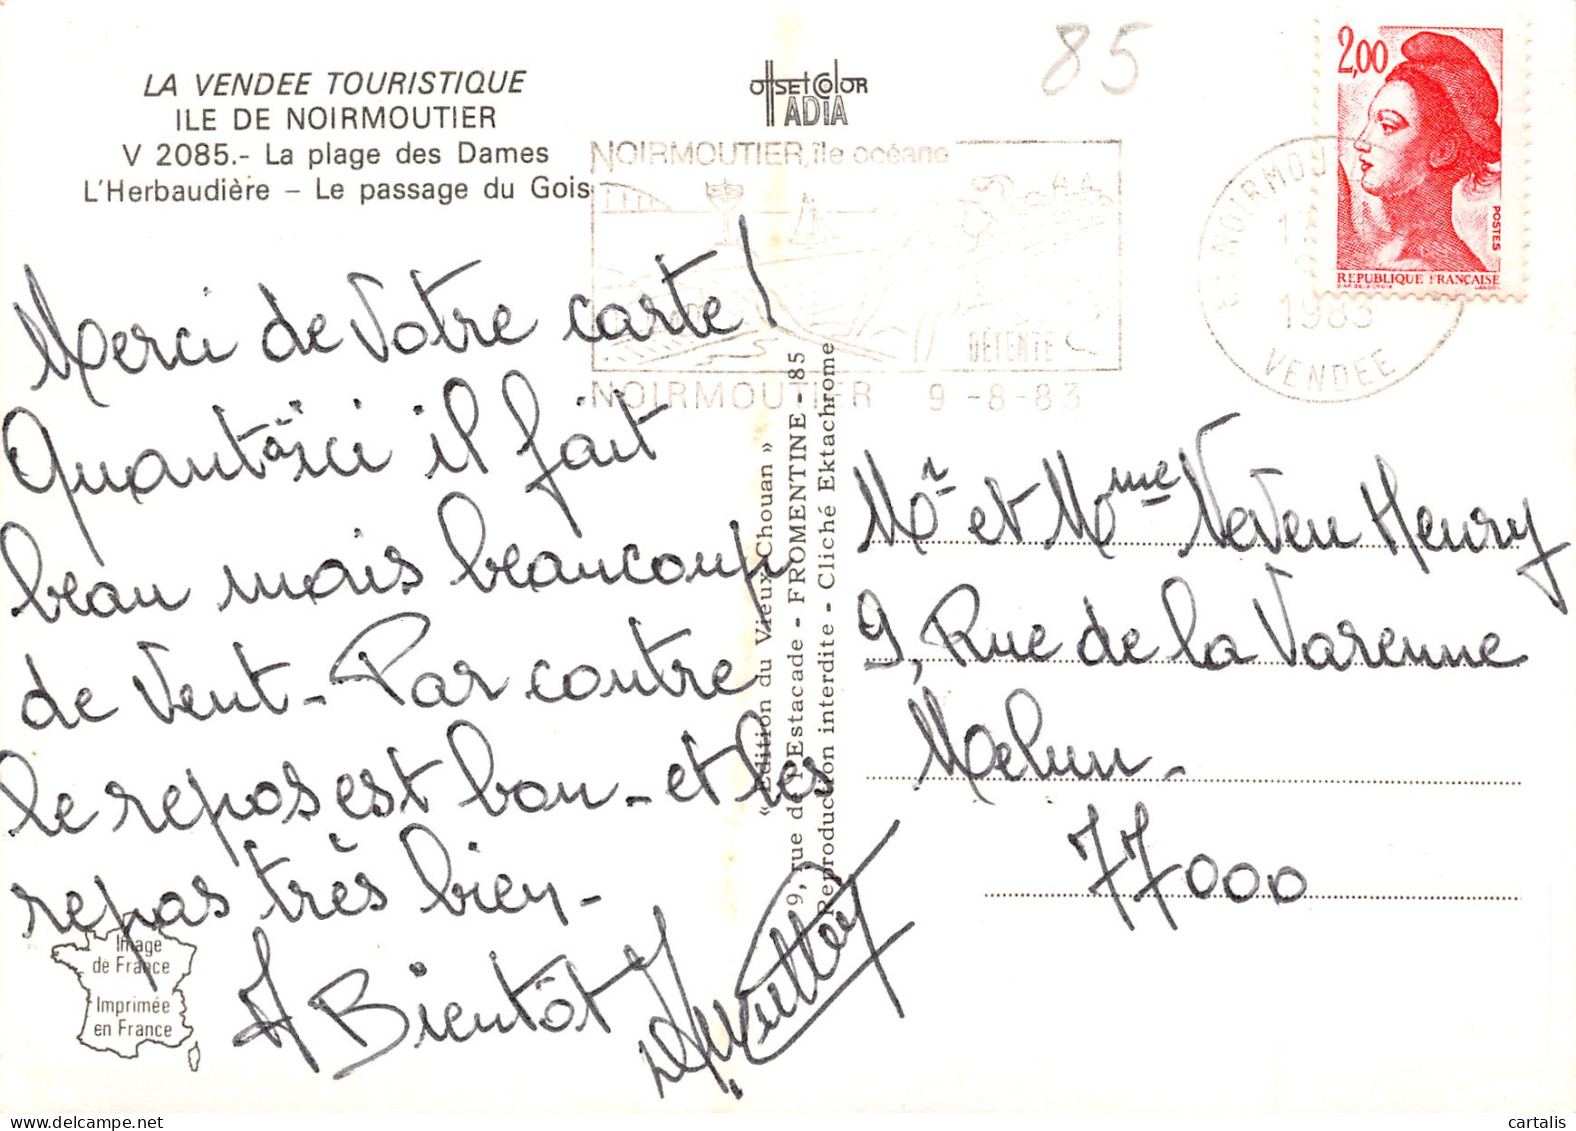 LA VENDEE TOURISTIQUE
ILE DE NOIRMOUTIER
V 2085.- La plage des Dames
L'Herbaudière - Le passage du Gois
offsetcolor
ADIA
85
2,00
POSTES
REPUBLIQUE FRANÇAISE
NOIRMOUTIER, île océane
DÉTENTE
NOIRMOUTIER 9 -8-83
1983
VENDEE
Merci de Votre carte!
Quant à ici il fait
beau mais beaucoup
de Vent - Par contre
le repos est bon - et les
repas très bien -
A Bientôt
Image
de France
Imprimée
en France
« Edition du Vieux Chouan »
9, rue de l'Estacade - FROMENTINE - 85
Reproduction interdite - Cliché Ektachrome
Mr et Mme Neveu Henry
9, Rue de la Varenne
Melun -
77000
cartalis